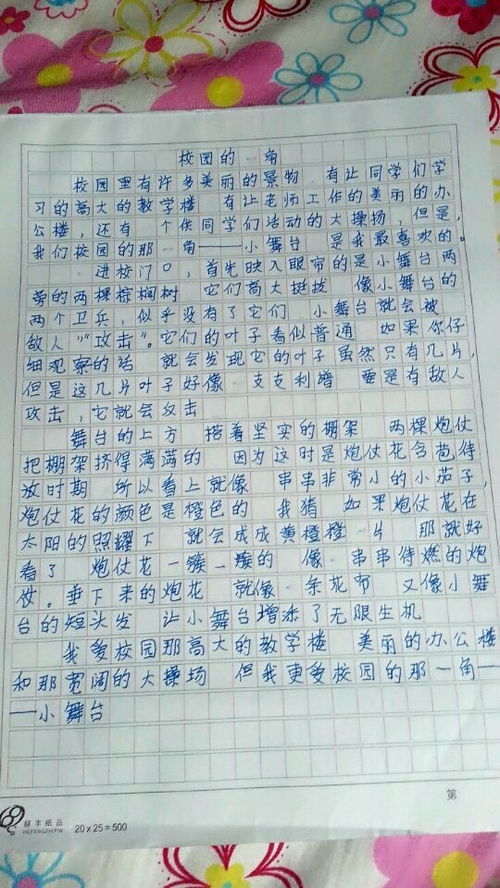 校园的一角
校园里有许多美丽的景物 有让同学们学
习的高大的教学楼 有让老师工作的美丽的办
公楼,还有 个供同学们活动的大操场,但是,
我们校园的那一角——小舞台 是我最喜欢的。
进校门口,首先映入眼帘的是小舞台两
旁的两棵棕榈树 它们高大挺拔 像小舞台的
两个卫兵,似乎没有了它们 小舞台就会被
敌人"攻击"。它们的叶子看似普通 如果你仔
细观察的话 就会发现它的叶子虽然只有几片,
但是这几片叶子好像 支支利 要是有敌人
攻击,它就会攻击
舞台的上方 搭着坚实的棚架 两棵炮仗
把棚架挤得满满的 因为这时是炮仗花含苞待
放时期 所以看上就像 串串非常小的小茄子,
炮仗花的颜色是橙色的 我猜 如果炮仗花在
太阳的照耀下 就会成成黄橙橙一片 那就好
看了 炮仗花一簇一簇的 像 串串待燃的炮
仗。垂下来的炮花 就像 条花布 又像小舞
台的短头发 让小舞台增添了无限生机
我爱校园那高大的教学楼 美丽的办公楼
和那宽阔的大操场 但我更爱校园的那一角—
—小舞台
第
纸品
20×25=500